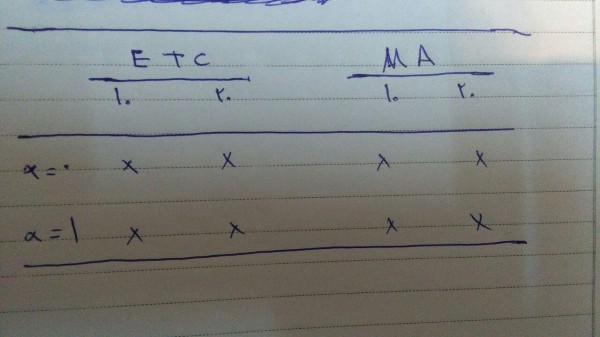 ETC MA
۱۰ ۲۰ ۱۰ ۲۰
α=۰ x x x x
α=1 x x x x